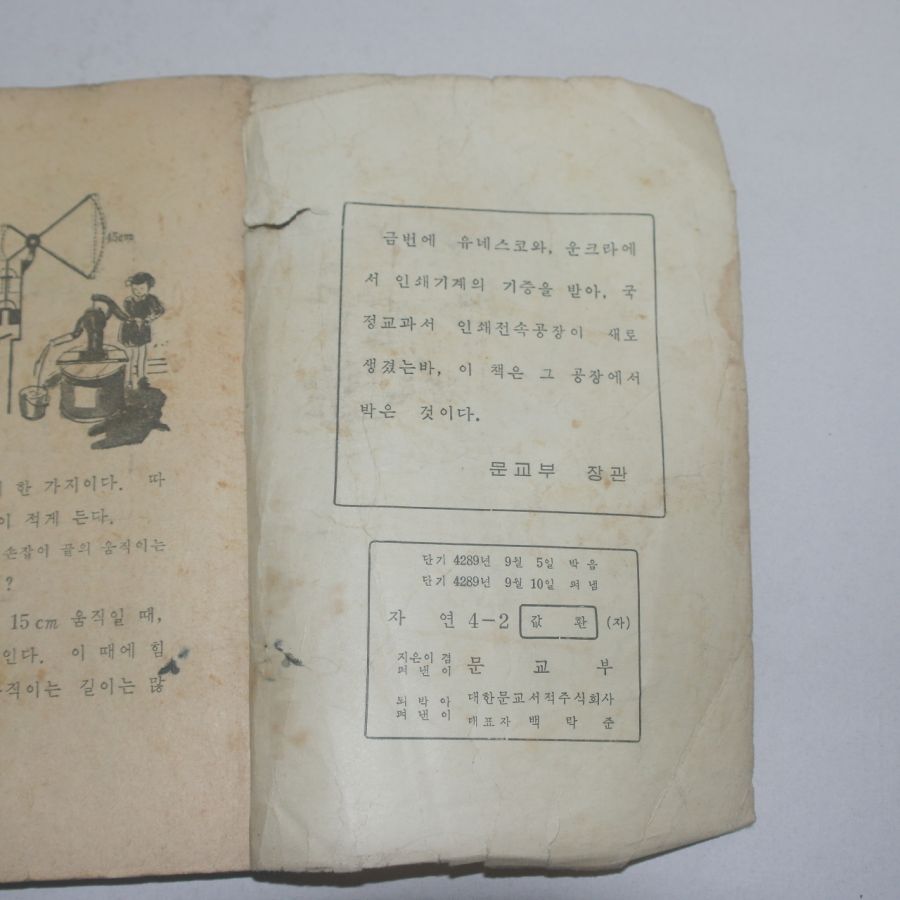 45cm
한 가지이다. 따
적게 든다.
손잡이 끝의 움직이는
?
15cm 움직일 때,
인다. 이 때에 힘
직이는 길이는 많
금번에 유네스코와, 운크라에
서 인쇄기계의 기증을 받아, 국
정교과서 인쇄전속공장이 새로
생겼는바, 이 책은 그 공장에서
박은 것이다.
문교부 장관
단기 4289년 9월 5일 박음
단기 4289년 9월 10일 펴냄
자 연 4-2 값 환 (자)
지은이 겸
펴 낸 이 문 교 부
되 박 아
펴 낸 이 대한문교서적주식회사
대표자 백 락 준